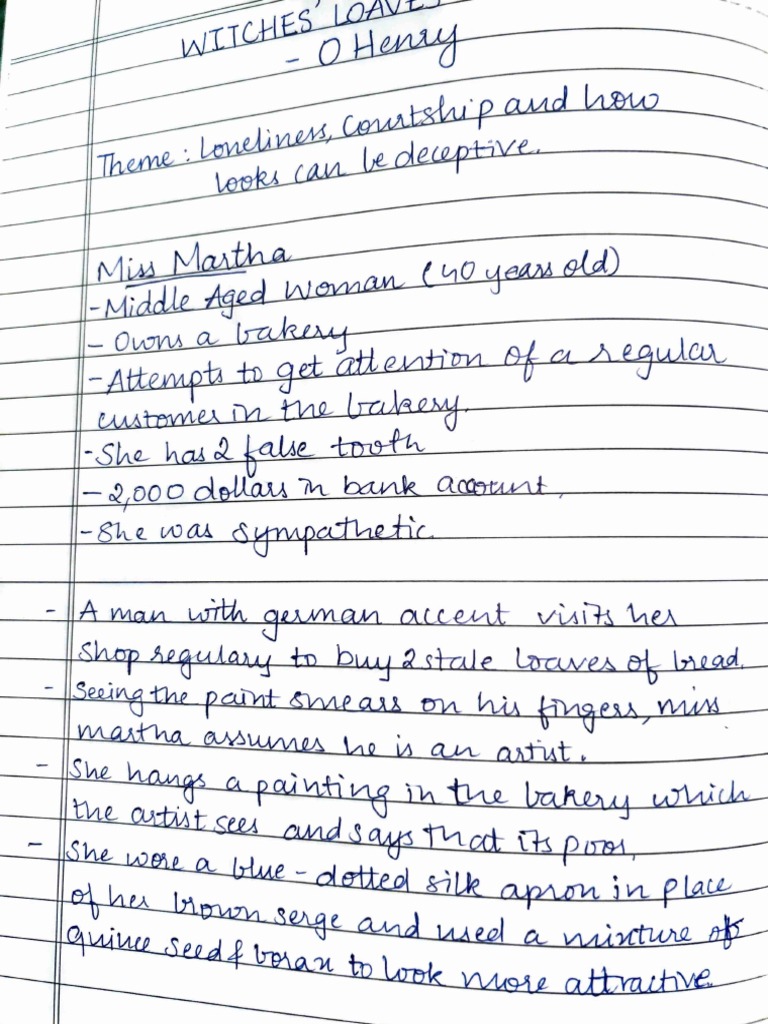 WITCHES' LOAVES
- O Henry
Theme : Loneliness, Courtship and how
looks can be deceptive.
Miss Martha
- Middle Aged Woman (40 years old)
- Owns a bakery
- Attempts to get attention of a regular
customer in the bakery.
- She has 2 false tooth
- 2,000 dollars in bank account.
- She was sympathetic.
- A man with german accent visits her
shop regulary to buy 2 stale loaves of bread.
- Seeing the paint smears on his fingers, miss
martha assumes he is an artist.
- She hangs a painting in the bakery which
the artist sees and says that its poor.
- She wore a blue-dotted silk apron in place
of her brown serge and used a mixture of
quince seed & borax to look more attractive.